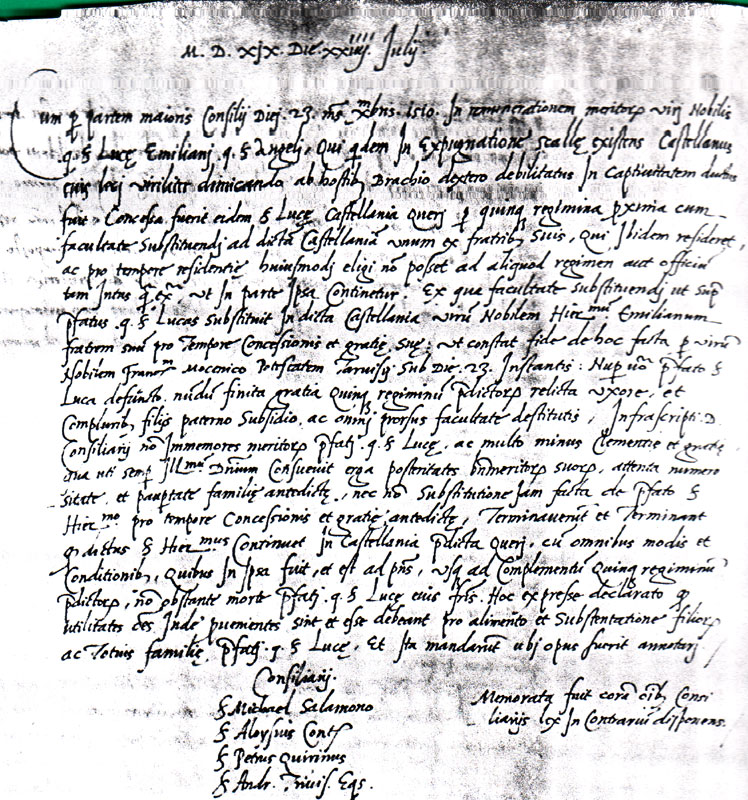 M. D. xjx. Die. xxiiij. Julij.
Cum p partem maioris Consilij Diej 23. ms Xbris. 1510. In remunerationem meritorz virj Nobilis
q. S Lucę Emilianj. q. S Angelj, Qui qdem In Expugnatione Scallę existens Castellanus
eius locj viriliter dimicando, ab hostib Brachio dextero debilitatus In Captivitatem ductus
fuit. Concessa fuerit eidem S Lucę Castellania Querj p quinq regimina pxima cum
facultate Substituendj ad dictā Castellaniā vnum ex fratrib Suis, Qui Ibidem resideret,
ac pro tempore residentię huiusmodj eligi nō posset ad aliquod regimen aut officiū
tam Intus q ex, Vt In parte Ipsa Continetur. Ex qua facultate Substituendj ut Sup
pfatus q. S Lucas Substituit In dicta Castellania virū Nobilem Hiermū Emilianum
fratrem suū pro Tempore Concessionis et gratię Suę: Vt constat fide de hoc facta p virū
Nobilem Francm Mocenico Potestatem Taruisij Sub Die. 23. Instantis: Nup uō pfato S
Luca defuncto, nundū finita gratia Quinq regiminū pdictorz relicta vxore, et
Complurib filijs paterno Subsidio, ac omnj prorsus facultate destitutis, Infrascripti D.
Consiliarij nō Immemores meritorz pfatj. q. S Lucę, ac multo minus Clementię et gratię,
qua uti semp Illmū Dnium Consueuit erga posteritates bnmeritorz suorz, attenta numero
sitate, et paupertate familię antedictę, nec nō Substitutione Jam facta de pfato S
Hiermo pro tempore Concessionis et gratię antedictę, Terminauerūt et Terminant
q dictus S Hiermus Continuet In Castellania pdicta Querj, cū omnibus modis et
Conditionib, Quibus In Ipsa fuit, et est ad pns, Vsq ad Complementū Quinq regiminū
pdictorz, nō obstante morte pfatj. q. S Lucę eius fris. Hoc expresse declarato q
vtilitates oēs Inde puenientes sint et esse debeant pro alimēto et Substentatione filiorz
ac Totius familię pfatj. q. S Lucę, Et Ita mandarūt ubj opus fuerit annotarj.
Consiliarij.
S Michael Salamono
S Aloysius Cont
S Petrus Quirinus
S Andr. Triuis. Eqs.
Memorata fuit corā oib Consi
liarijs lex In Contrariū disponens.